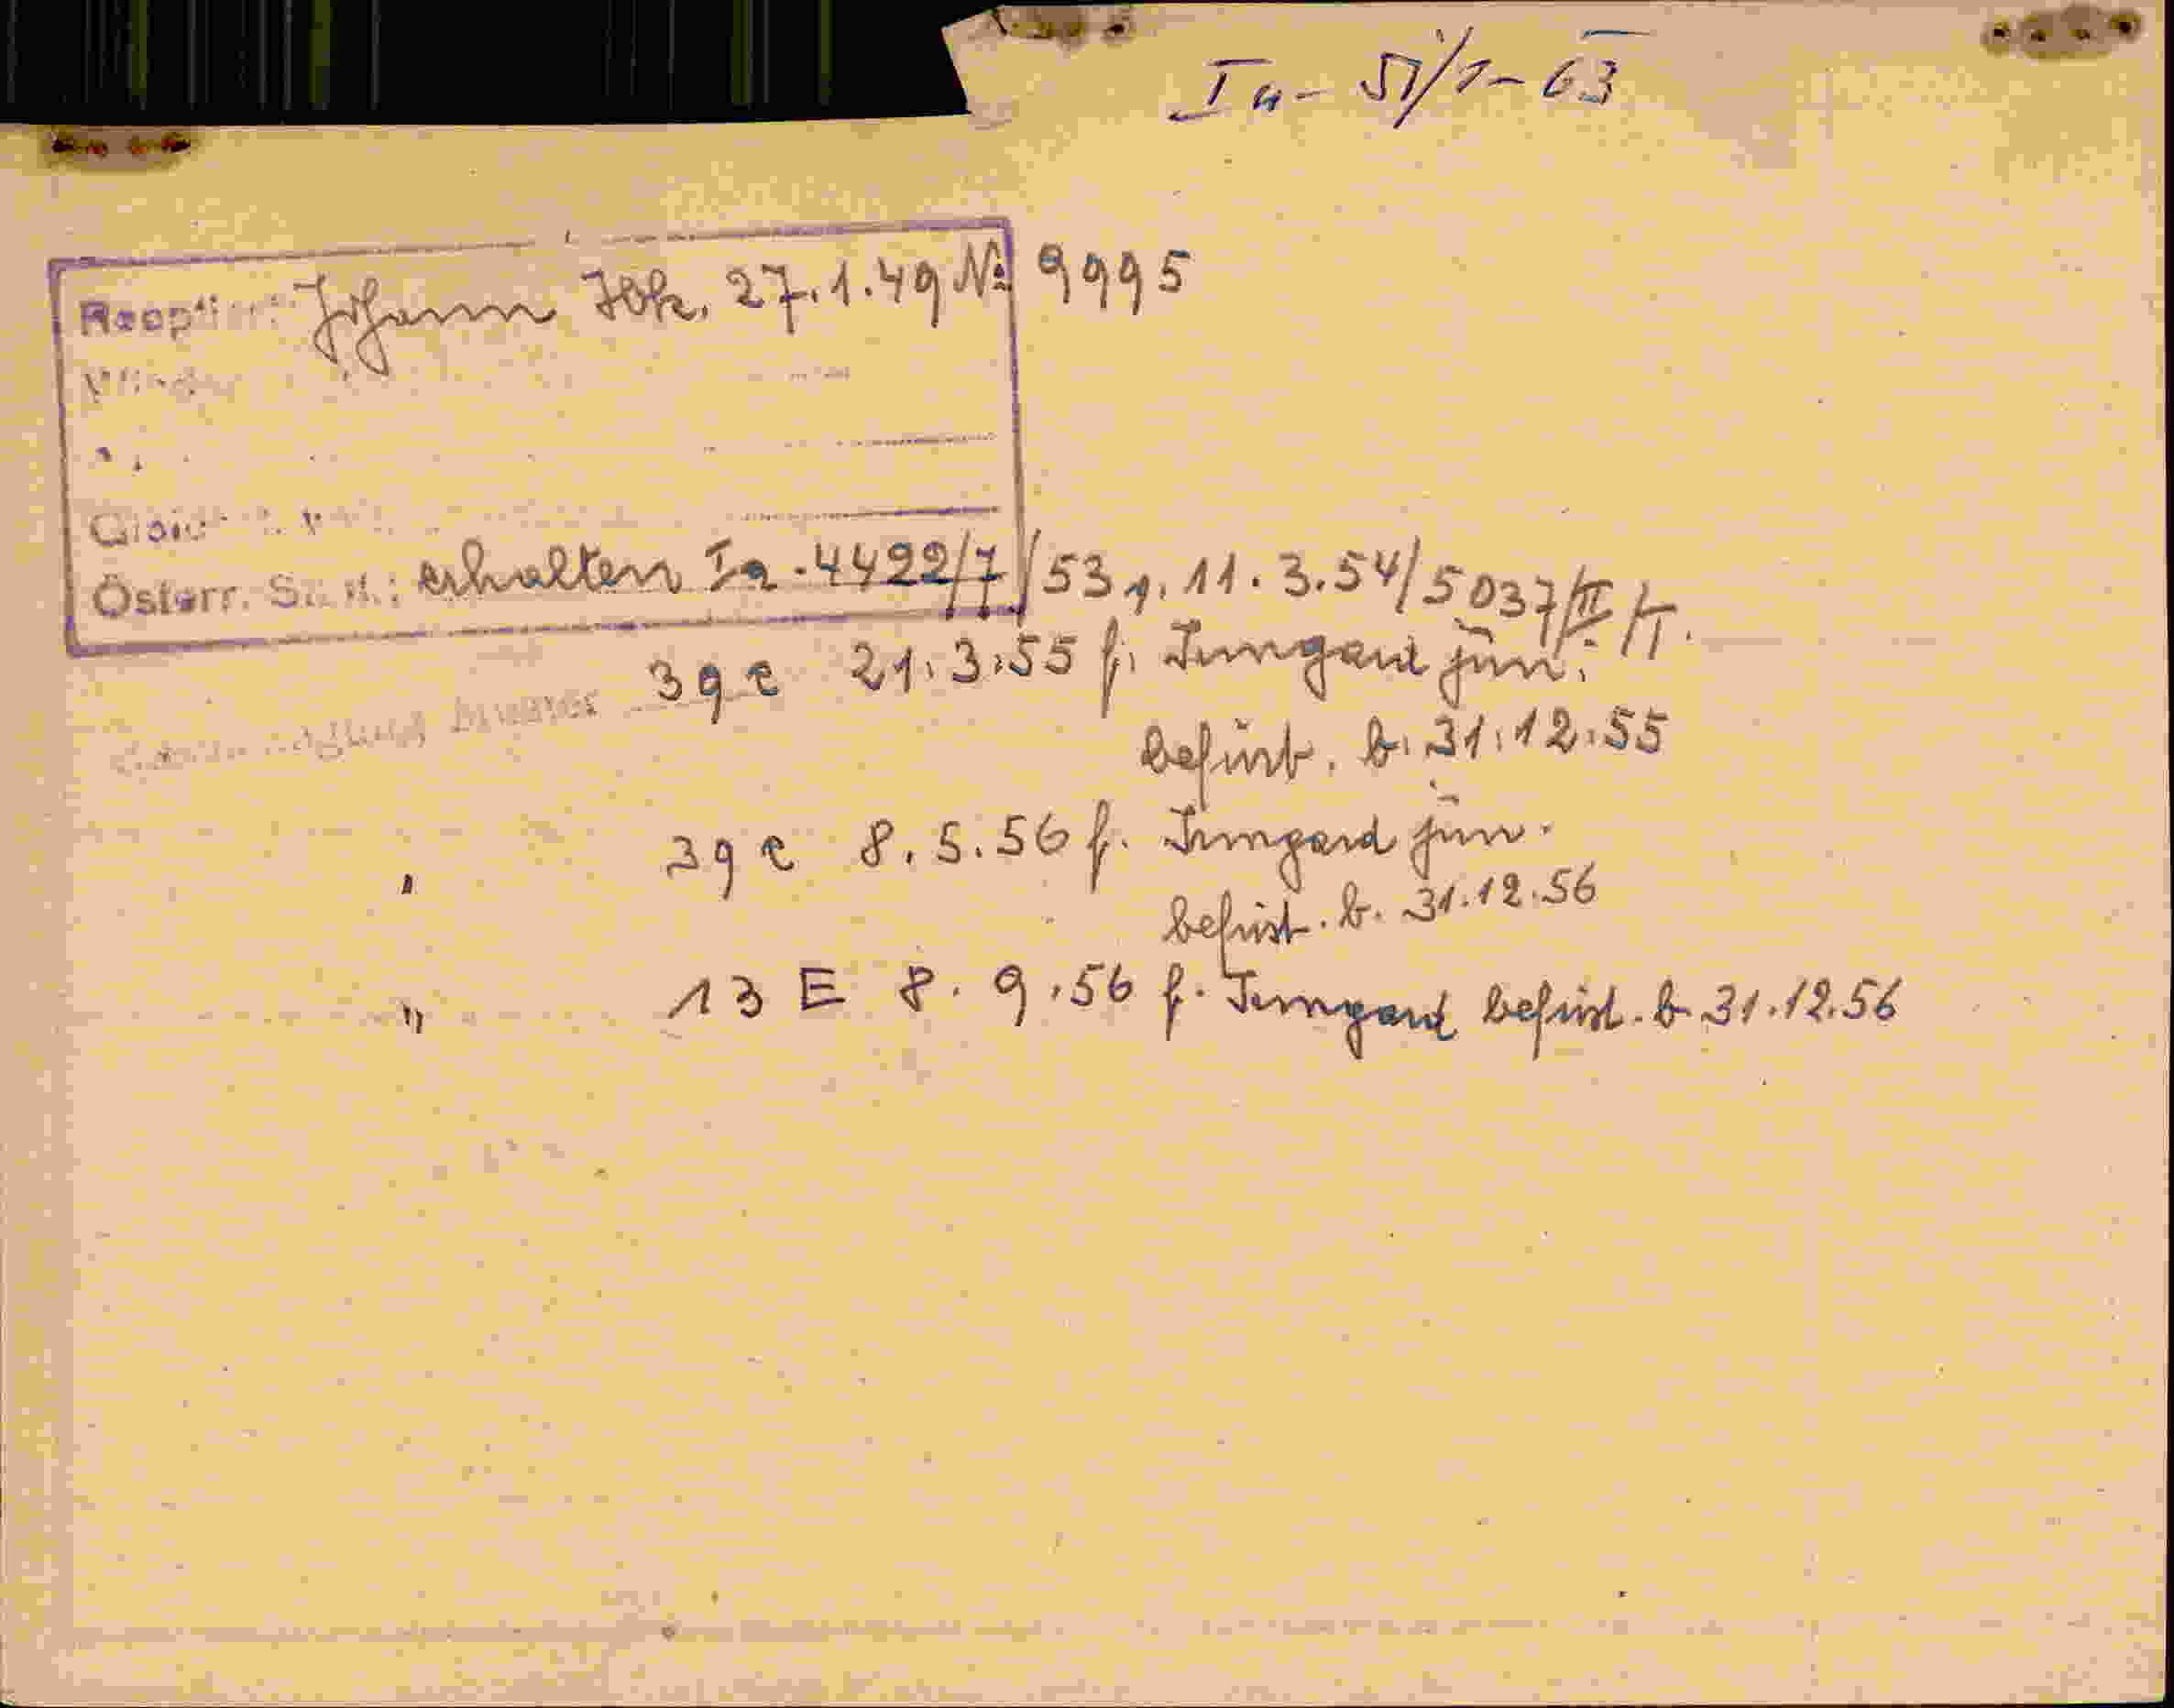 Ia - 51/1-63
Johann Ibk. 27.1.49 № 9995
Österr. erhalten Ia-4422/7/53 v. 11.3.54/5037/II/I.
39c 21.3.55 f. Irmgard jun.
befrist. b. 31.12.55
" 39c 8.5.56 f. Irmgard jun.
befrist. b. 31.12.56
" 13 E 8.9.56 f. Irmgard befrist. b. 31.12.56